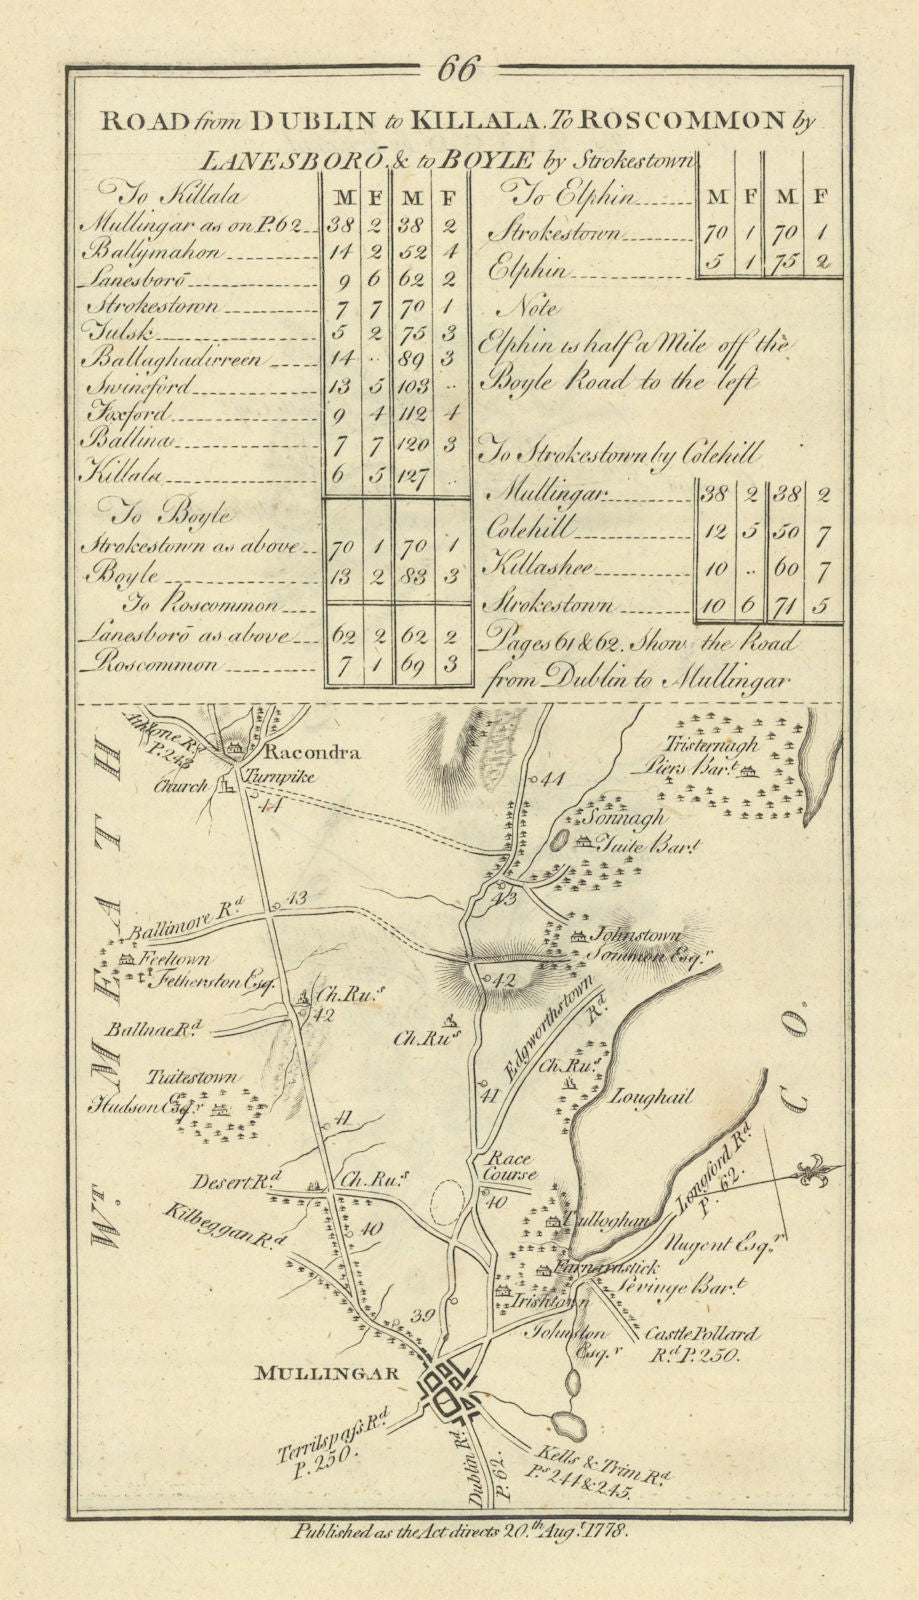 66
ROAD from DUBLIN to KILLALA. To ROSCOMMON by
LANESBORŌ. & to BOYLE by Strokestown
To Killala M F M F
Mullingar as on P.62 38 2 38 2
Ballymahon 14 2 52 4
Lanesborō 9 6 62 2
Strokestown 7 7 70 1
Tulsk 5 2 75 3
Ballaghadirreen 14 .. 89 3
Swineford 13 5 103 ..
Foxford 9 4 112 4
Ballina 7 7 120 3
Killala 6 5 127 ..
To Boyle
Strokestown as above 70 1 70 1
Boyle 13 2 83 3
To Roscommon
Lanesborō as above 62 2 62 2
Roscommon 7 1 69 3
To Elphin M F M F
Strokestown 70 1 70 1
Elphin 5 1 75 2
Note
Elphin is half a Mile off the
Boyle Road to the left
To Strokestown by Colehill
Mullingar 38 2 38 2
Colehill 12 5 50 7
Killashee 10 .. 60 7
Strokestown 10 6 71 5
Pages 61 & 62. Show the Road
from Dublin to Mullingar
Athlone Rd
P.243
Racondra
Church
Turnpike
44
44
Tristernagh
Piers Bart.
Sonnagh
Tuite Bart.
43
43
Ballimore Rd
Feeltown
Fetherston Esq.
Johnstown
Sommon Esqr.
42
Ch. Rus.
42
Ballnae Rd
Ch. Rus.
Edgworthstown
Rd
Ch. Rus.
Tuitestown
Hudson Esqr.
Loughail
41
41
WT. MEATH
CO.
Race
Course
40
Desert Rd
Ch. Rus.
Kilbeggan Rd
40
Longford Rd
P. 62.
Tulloghan
Nugent Esqr.
Farnanstick
Levinge Bart.
Irishtown
39
Johnston
Esqr.
Castle Pollard
Rd. P.250.
MULLINGAR
Terrilspass Rd
P.250.
Dublin Rd
P. 62.
Kells & Trim Rd
Ps. 244 & 245.
Published as the Act directs 20th. Augt. 1778.